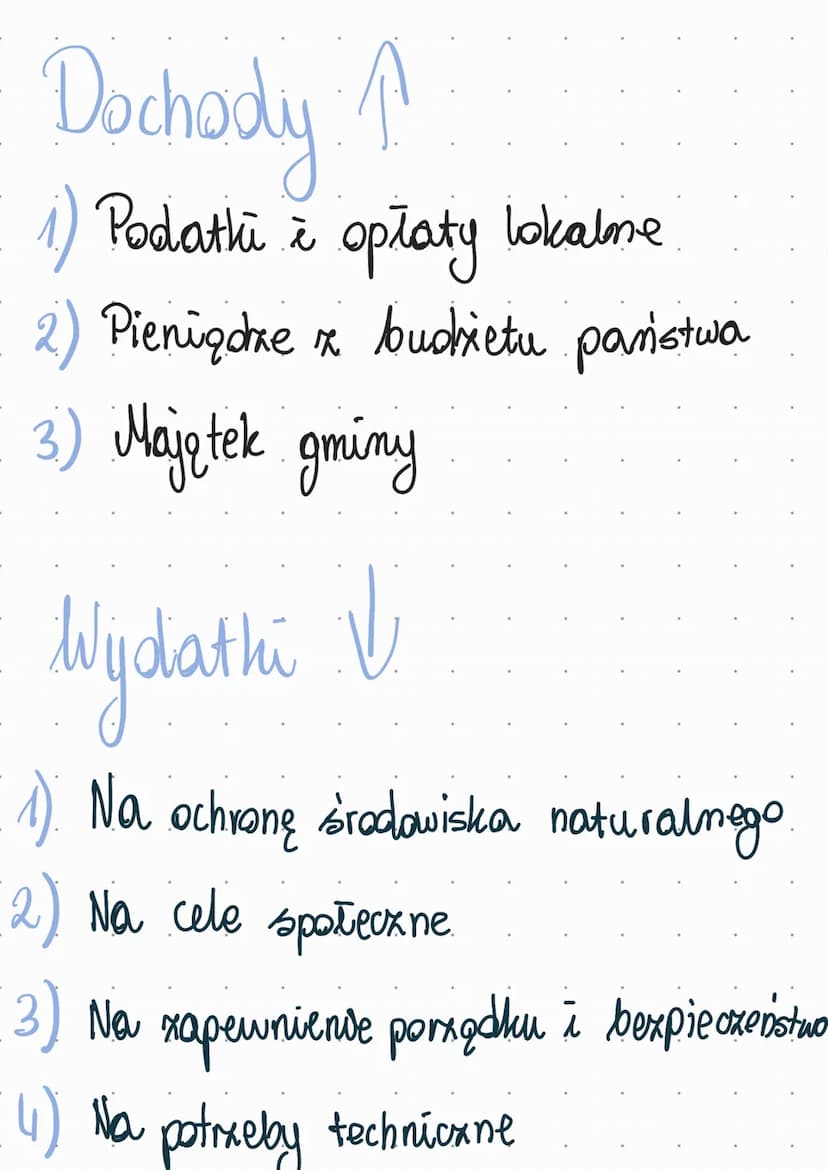 Dochody ↑
1) Podatki i opłaty lokalne
2) Pieniądze z budżetu państwa
3) Majątek gminy
Wydatki ↓
1) Na ochronę środowiska naturalnego
2) Na cele społeczne
3) Na zapewnienie porządku i bezpieczeństwo
4) Na potrzeby techniczne